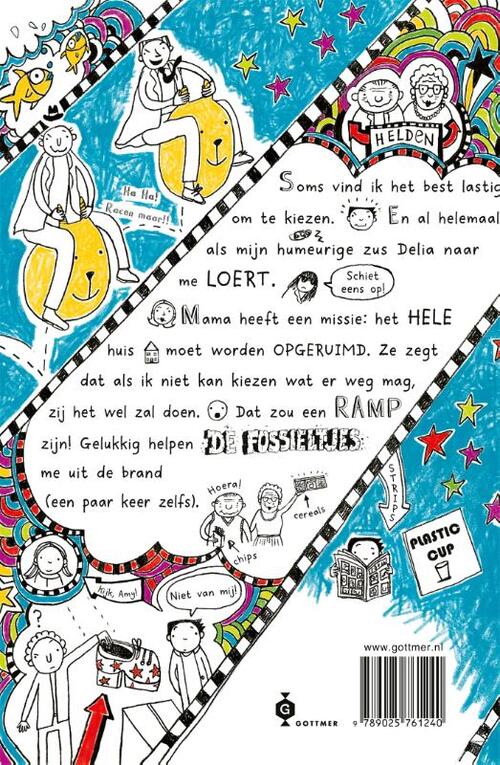 HELDEN
Ha Ha!
Racen maar!!
Soms vind ik het best lastig
om te kiezen. En al helemaal
als mijn humeurige zus Delia naar
me LOERT.
Schiet
eens op!
Mama heeft een missie: het HELE
huis moet worden OPGERUIMD. Ze zegt
dat als ik niet kan kiezen wat er weg mag,
zij het wel zal doen. Dat zou een RAMP
zijn! Gelukkig helpen DE FOSSIELTJES
me uit de brand
(een paar keer zelfs).
Hoera!
cereals
chips
STRIPS
PLASTIC
CUP
Kijk, Amy!
Niet van mij!
?
www.gottmer.nl
G
GOTTMER
9 789025 761240